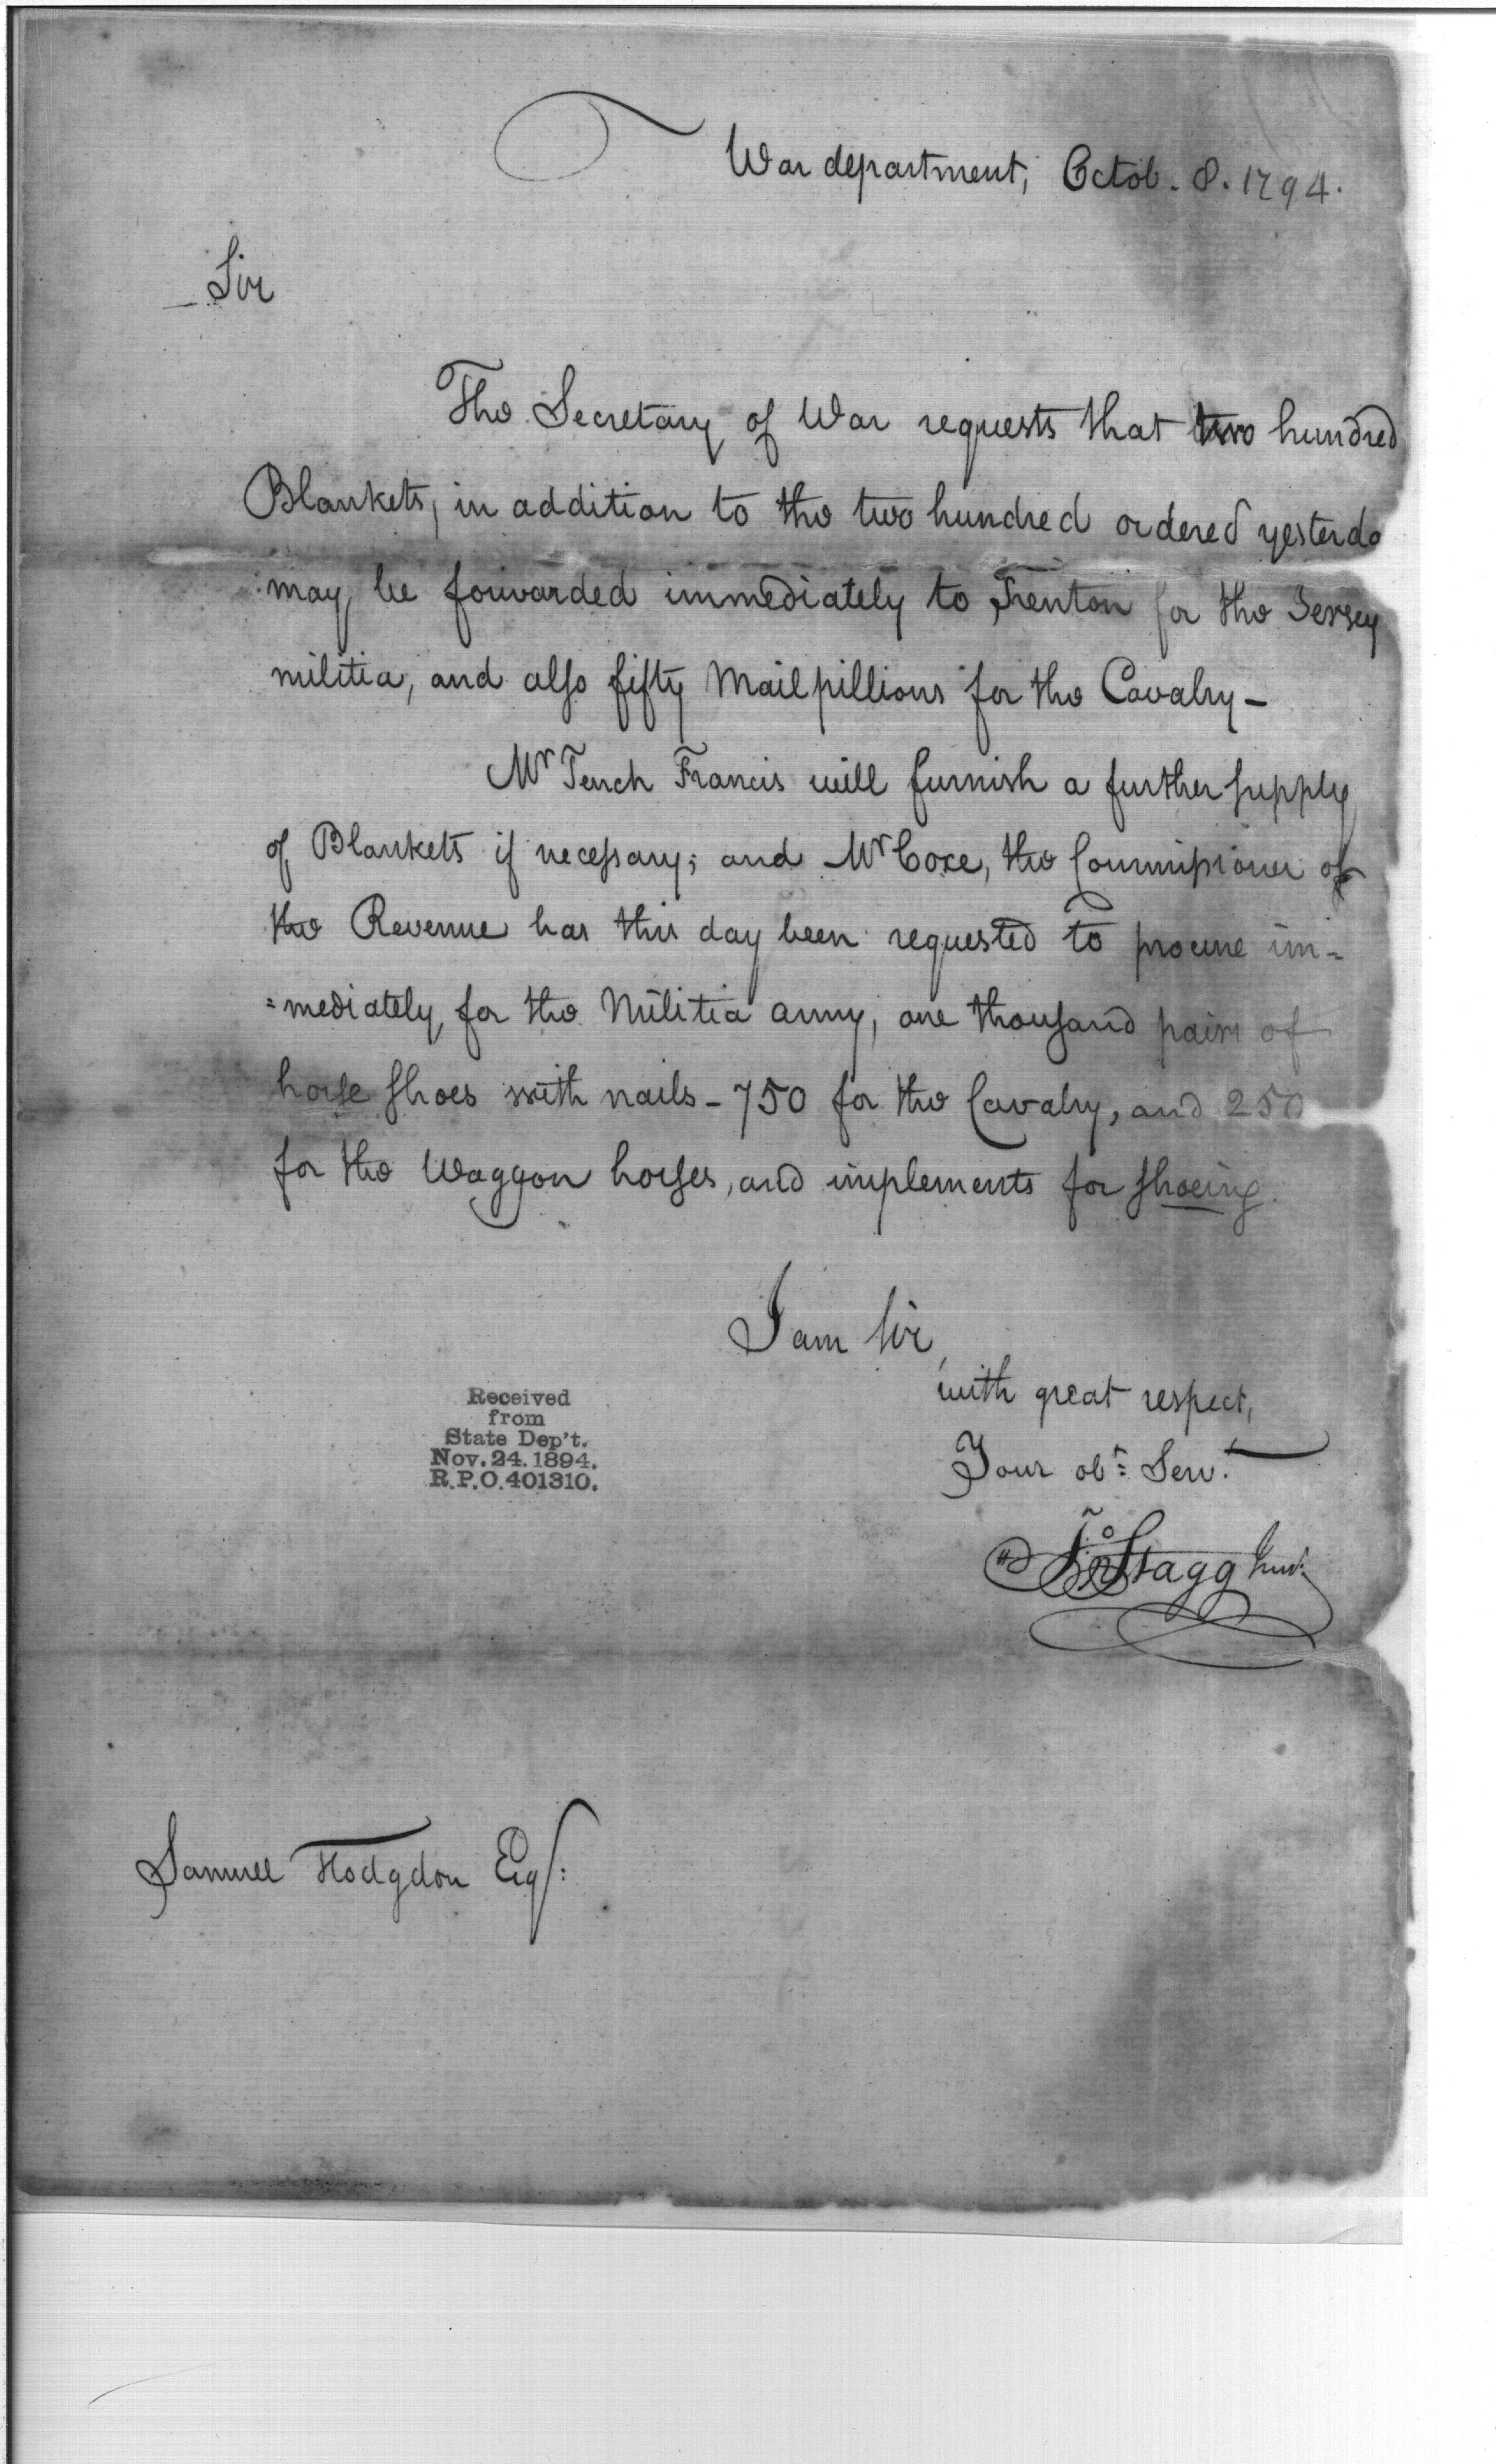 War department, Octob. 8. 1794.
Sir
The Secretary of War requests that two hundred
Blankets, in addition to the two hundred ordered yesterda
may be forwarded immediately to Trenton for the Jersey
militia, and also fifty Mailpillions for the Cavalry -
Mr Tench Francis will furnish a further supply
of Blankets if necessary; and Mr Coxe, the Commissioner of
the Revenue has this day been requested to procure im=
=mediately, for the Militia army, one thousand pairs of
horse shoes with nails - 750 for the Cavalry, and 250
for the Waggon horses, and implements for shoeing.
I am Sir,
with great respect,
Your obt= Servt.
Jno Stagg Junr.
Received
from
State Dep't.
Nov. 24. 1894.
R.P.O. 401310.
Samuel Hodgdon Esqr: